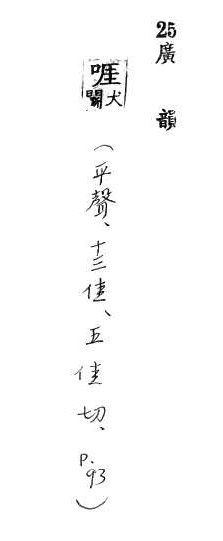 25廣韻
啀犬鬭
（平聲、十三佳、五佳切、P.93）